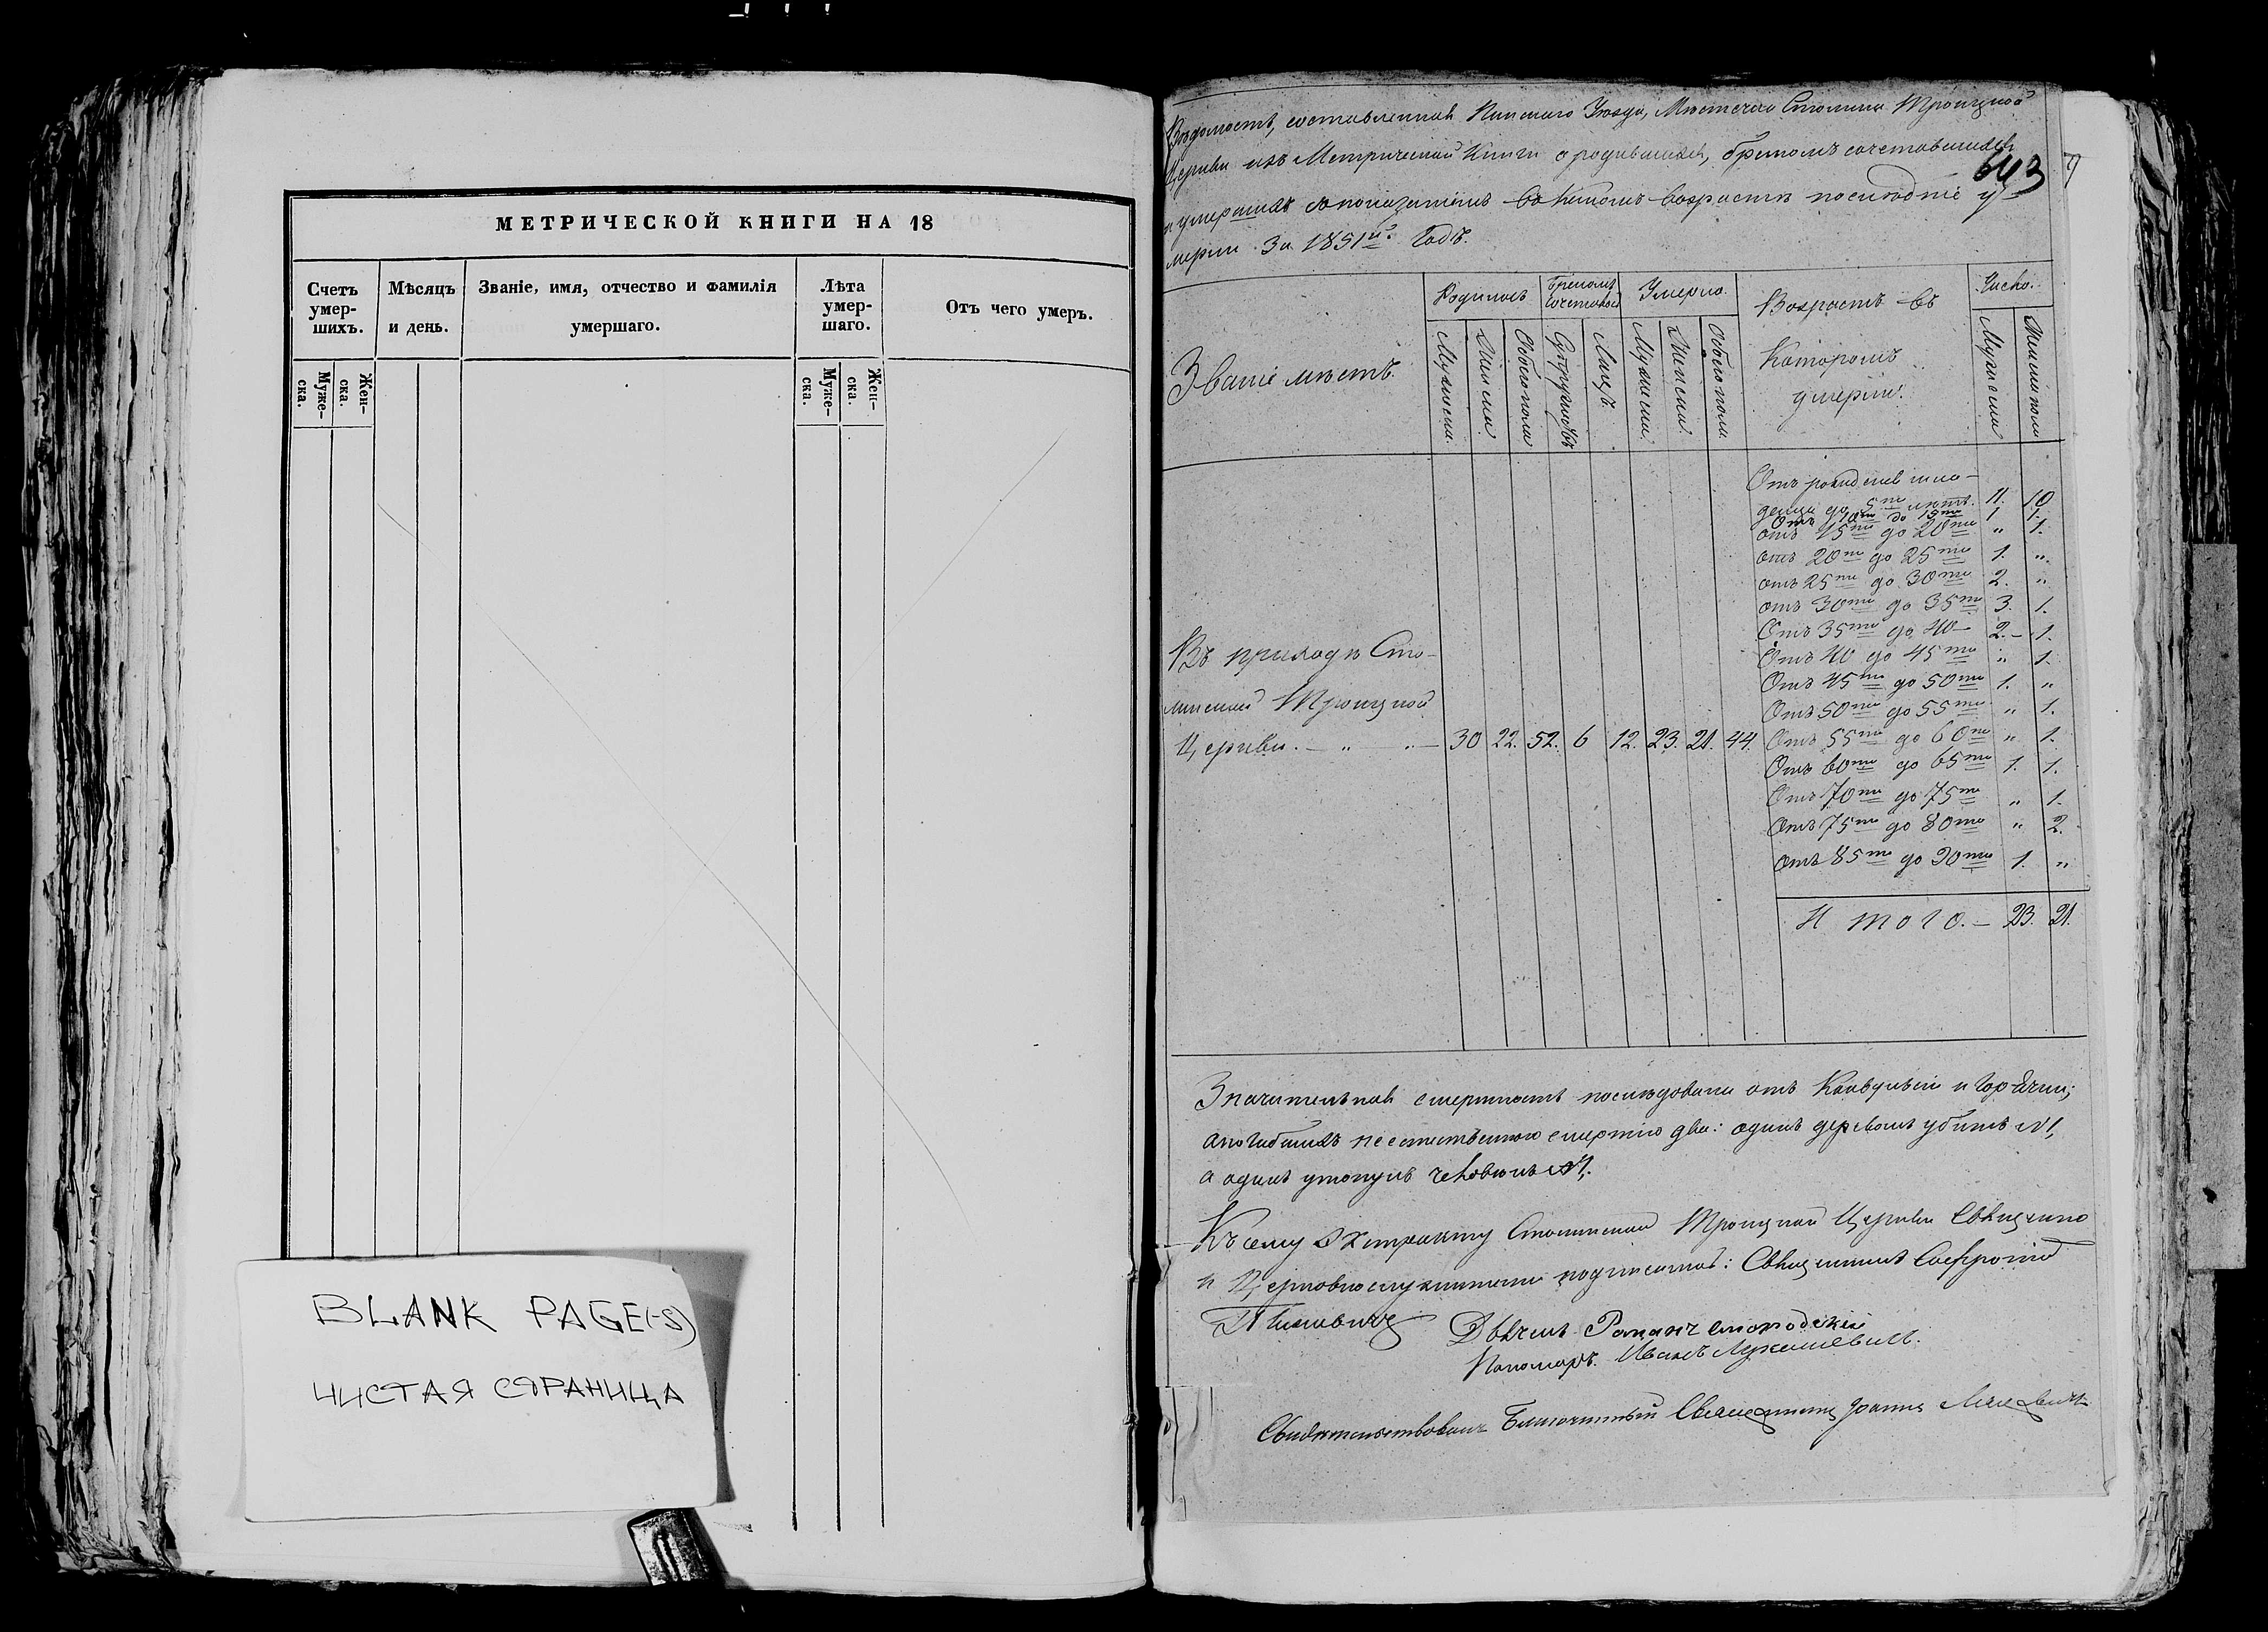 МЕТРИЧЕСКОЙ КНИГИ НА 18
Счетъ умер-шихъ.
Мѣсяцъ и день.
Званіе, имя, отчество и фамилія умершаго.
Лѣта умер-шаго.
Отъ чего умеръ.
Муже-ска.
Жен-ска.
Муже-ска.
Жен-ска.
BLANK PAGE(-S)
ЧИСТАЯ СТРАНИЦА
Вѣдомость, составленная Пинскаго Уѣзда, Мѣстечка Столина Троицкой
Церкви изъ Метрической Книги о родившихся, бракомъ сочетавшихся
643
и умершихъ съ показаніемъ въ какомъ возрастѣ послѣдніе у-
мерли. За 1851й Годъ.
Званіе мѣстъ.
Родилось
Бракомъ сочеталось
Умерло.
Возрастъ въ
Которомъ
умерли.
Число.
Мужеска.
Женска
Обоего пола
Супружествъ
Лицъ.
Мужеска
Женска.
Обоего пола.
Мужеска
Женска пола
Отъ рожденія мла-
денцы до 5ти лѣтъ. 11. 10
Отъ 10ти до 15ти 1. 1.
отъ 15ти до 20ти " 1.
отъ 20ти до 25ти 1. "
отъ 25ти до 30ти 2. "
отъ 30ти до 35ти 3. 1.
Отъ 35ти до 40 2. 1.
Отъ 40 до 45ти " 1.
Отъ 45ти до 50ти 1. "
Отъ 50ти до 55ти " 1.
Въ приходѣ Сто-
линской Троицкой
Церкви. — " — 30 22. 52. 6 12. 23. 21. 44. Отъ 55ти до 60ти " 1.
Отъ 60ти до 65ти 1. 1.
Отъ 70ти до 75ти " 1.
Отъ 75ти до 80ти " 2.
Отъ 85ти до 90ти 1. "
Итого. — 23. 21.
Значительная смертность послѣдовала отъ и Горячки;
а погибшихъ неестественною смертію два: одинъ деревомъ убитъ №1,
а одинъ утонулъ человѣкъ №1.
Къ сему Экстракту Столинской Троицкой Церкви Священно
и Церковнослужители подписались: Священникъ Софроній
Дьячекъ Романъ
Пономарь. Иванъ Лукашевичъ.
Свидѣтельствовалъ Благочинный Священникъ Іоаннъ